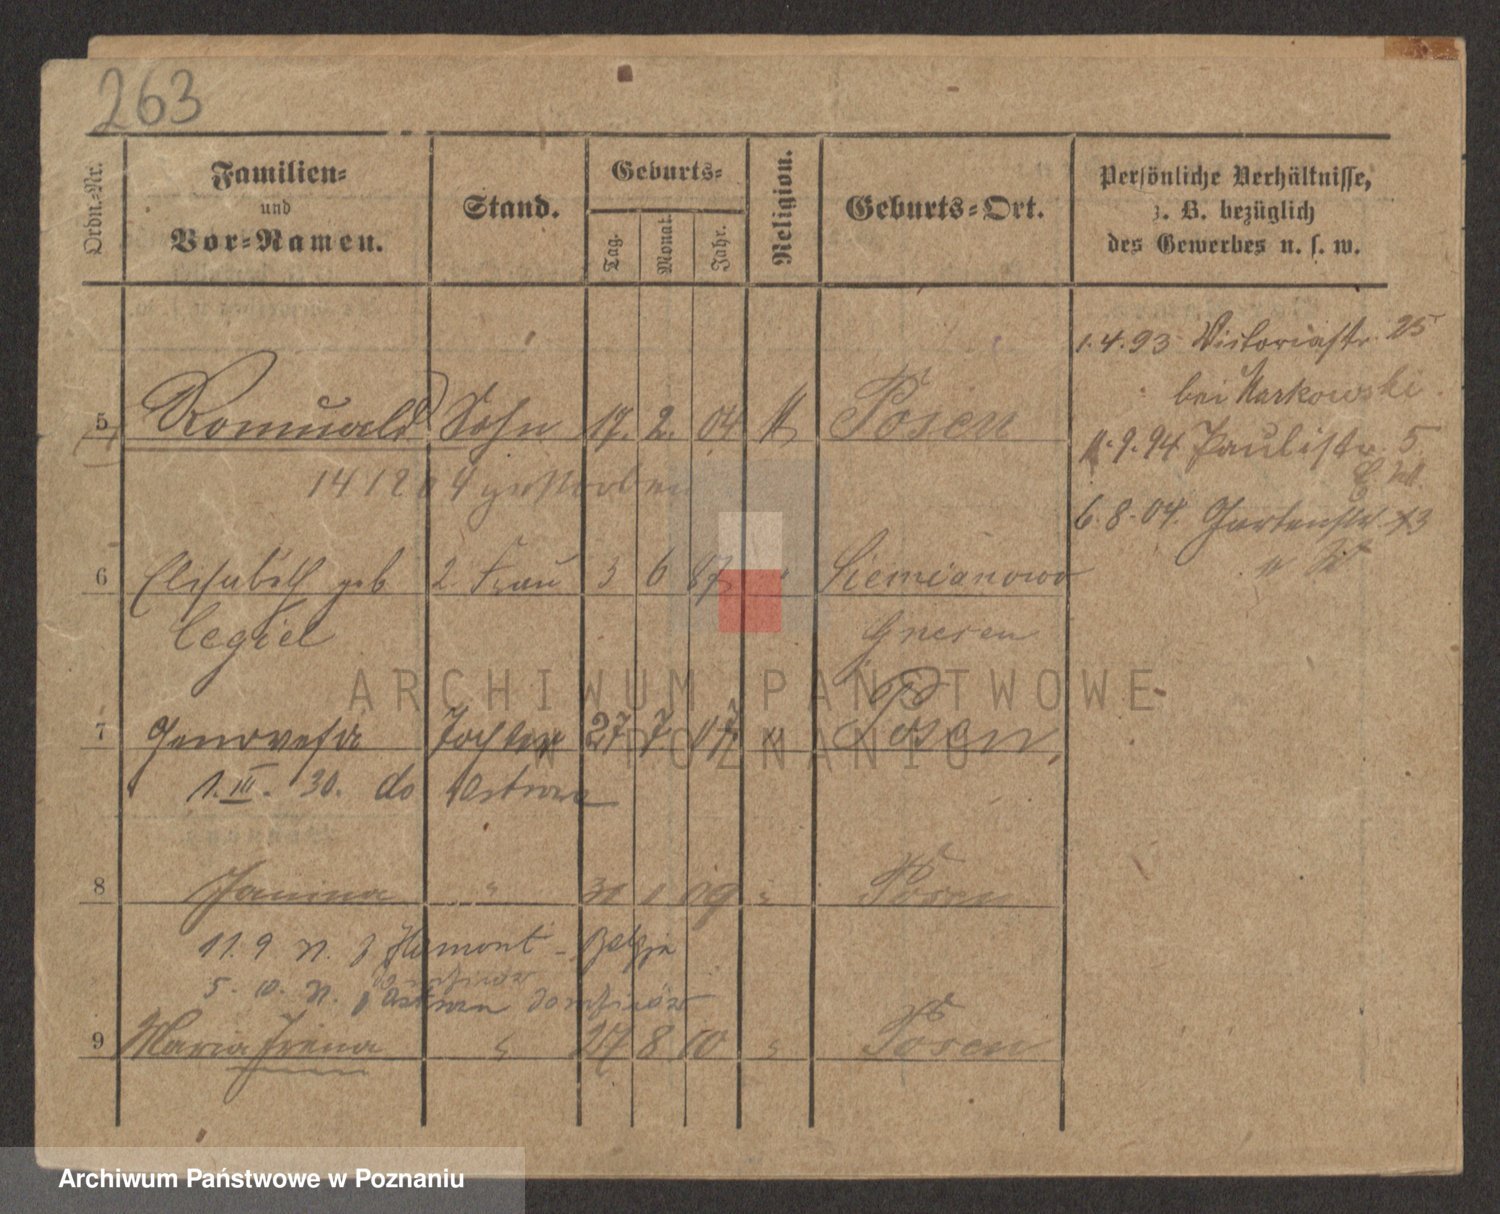 263
Ordn.-Nr.
Familien-
und
Vor-Namen.
Stand.
Geburts-
Tag.
Monat.
Jahr.
Religion.
Geburts-Ort.
Persönliche Verhältnisse,
z. B. bezüglich
des Gewerbes u. s. w.
1.4.93 Victoriastr. 25
bei Markowski
5 Romuald Sohn 17. 2. 04 Posen
11.9.94 Paulistr. 5
14 12 04 gestorben
6.8.04. Gartenstr. 13
6 Elisabeth geb 2. Frau 3 6 87 " Siemianowo
Cegiel Gnesen
7 Genovefa Tochter 27 7. 07. " Posen,
1. III. 30. do Ostrowa
8 Janina " 31 1 09 " Posen
11.9 n. z Hamont - Belgja
5. 10. n.
9 Maria Irena " 27 8 10 " Posen
ARCHIWUM PAŃSTWOWE
W POZNANIU
Archiwum Państwowe w Poznaniu